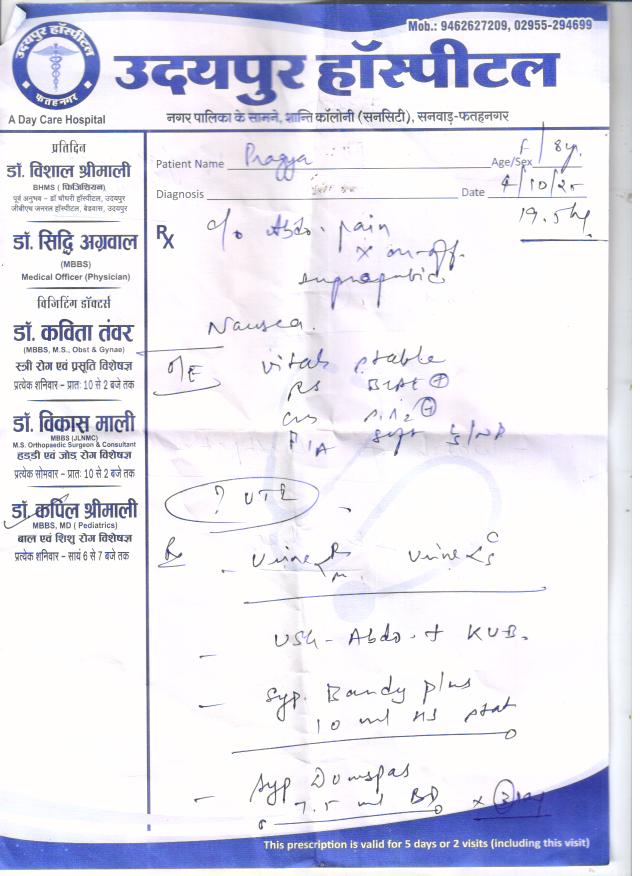 Mob.: 9462627209, 02955-294699
उदयपुर हॉस्पीटल
फतहनगर
A Day Care Hospital
उदयपुर हॉस्पीटल
नगर पालिका के सामने, शान्ति कॉलोनी (सनसिटी), सनवाड़-फतहनगर
प्रतिदिन
डॉ. विशाल श्रीमाली
BHMS (फिजिशियन)
पूर्व अनुभव - डॉ चौधरी हॉस्पीटल, उदयपुर
जीबीएच जनरल हॉस्पीटल, बेडवास, उदयपुर
डॉ. सिद्धि अग्रवाल
(MBBS)
Medical Officer (Physician)
विजिटिंग डॉक्टर्स
डॉ. कविता तंवर
(MBBS, M.S., Obst & Gynae)
स्त्री रोग एवं प्रसूति विशेषज्ञ
प्रत्येक शनिवार - प्रातः 10 से 2 बजे तक
डॉ. विकास माली
MBBS (JLNMC)
M.S. Orthopaedic Surgeon & Consultant
हड्डी एवं जोड़ रोग विशेषज्ञ
प्रत्येक सोमवार - प्रातः 10 से 2 बजे तक
डॉ. कपिल श्रीमाली
MBBS, MD ( Pediatrics)
बाल एवं शिशु रोग विशेषज्ञ
प्रत्येक शनिवार - सायं 6 से 7 बजे तक
Patient Name Pragya Age/Sex F/8y.
Diagnosis Date 4/10/25
19.5kg
Rx c/o Abdo. pain
x on-off.
suprapubic
Nausea.
O/E vitals stable
RS BLAE +
CVS S1S2 +
P/A Soft
? UTI
Rx - Urine R/m Urine C/S
- USG - Abdo. + KUB.
- Syp. Bandy plus
10 ml HS stat
- Syp Domspas
7.5 ml BD x 3 day
This prescription is valid for 5 days or 2 visits (including this visit)